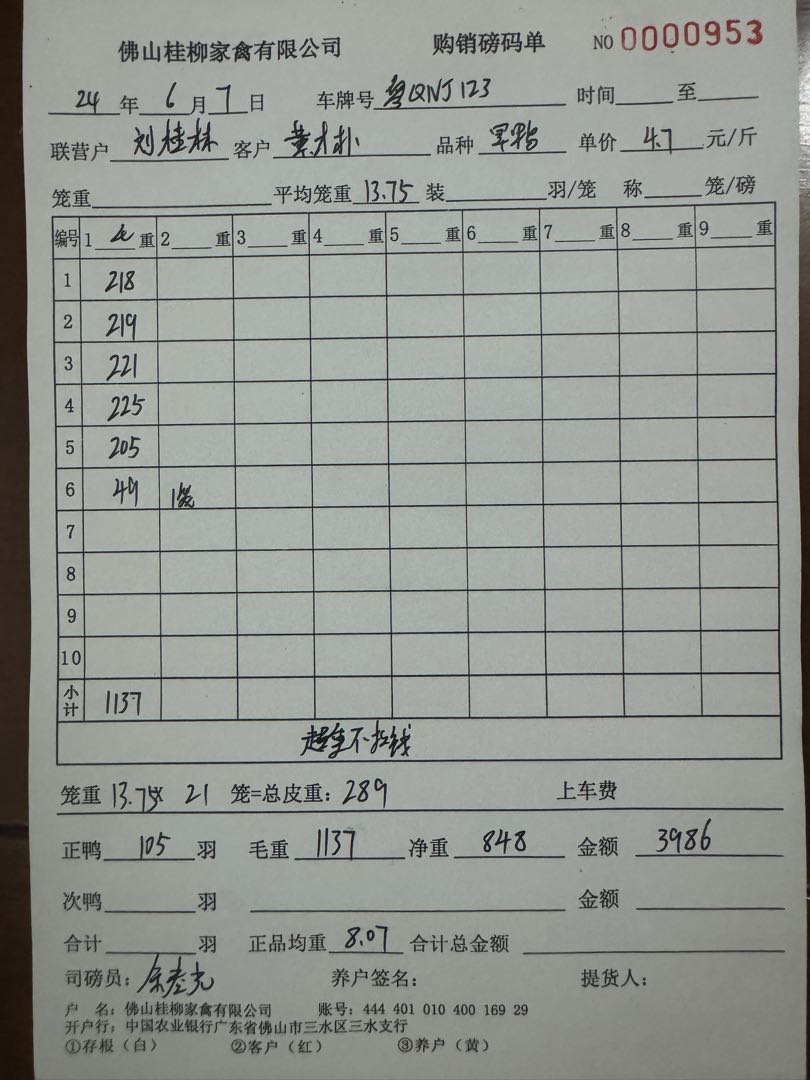 佛山桂柳家禽有限公司 购销磅码单 NO 0000953
24 年 6 月 7 日 车牌号 粤QNJ123 时间 至
联营户 刘桂林 客户 黄木朴 品种 早鸭 单价 4.7 元/斤
笼重 平均笼重 13.75 装 羽/笼 称 笼/磅
编号 1 4 重 2 重 3 重 4 重 5 重 6 重 7 重 8 重 9 重
1 218
2 219
3 221
4 225
5 205
6 49 1笼
7
8
9
10
小计 1137
超重不拉钱
笼重 13.75x 21 笼=总皮重: 289 上车费
正鸭 105 羽 毛重 1137 净重 848 金额 3986
次鸭 羽 金额
合计 羽 正品均重 8.07 合计总金额
司磅员: 养户签名: 提货人:
户 名: 佛山桂柳家禽有限公司 账号: 444 401 010 400 169 29
开户行: 中国农业银行广东省佛山市三水区三水支行
①存根(白) ②客户(红) ③养户(黄)